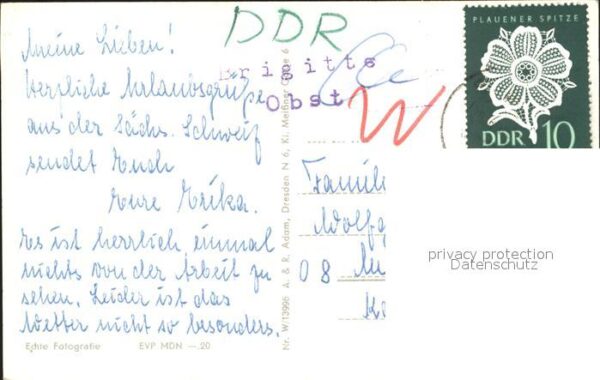 Meine Lieben!
Herzliche Urlaubsgrüße
aus der Sächs. Schweiz
sendet Euch
Eure Erika.
Es ist herrlich einmal
nichts von der Arbeit zu
sehen. Leider ist das
Wetter nicht so besonders.
Echte Fotografie EVP MDN —.20
Nr. W/13996 A. & R. Adam, Dresden N 6, Kl. Meißner Gasse 6
DDR
Brigitte
Obst
W
PLAUENER SPITZE
DDR 10
Famili
Adolf
08
privacy protection
Datenschutz